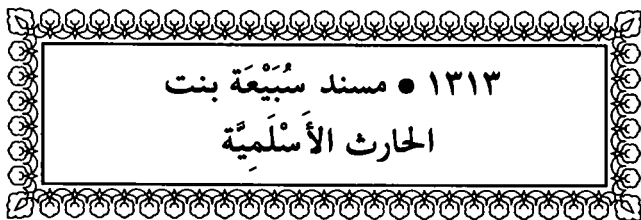 ١٣١٣ • مسند سُبَيْعَة بنت
الحارث الأَسْلَمِيَّة